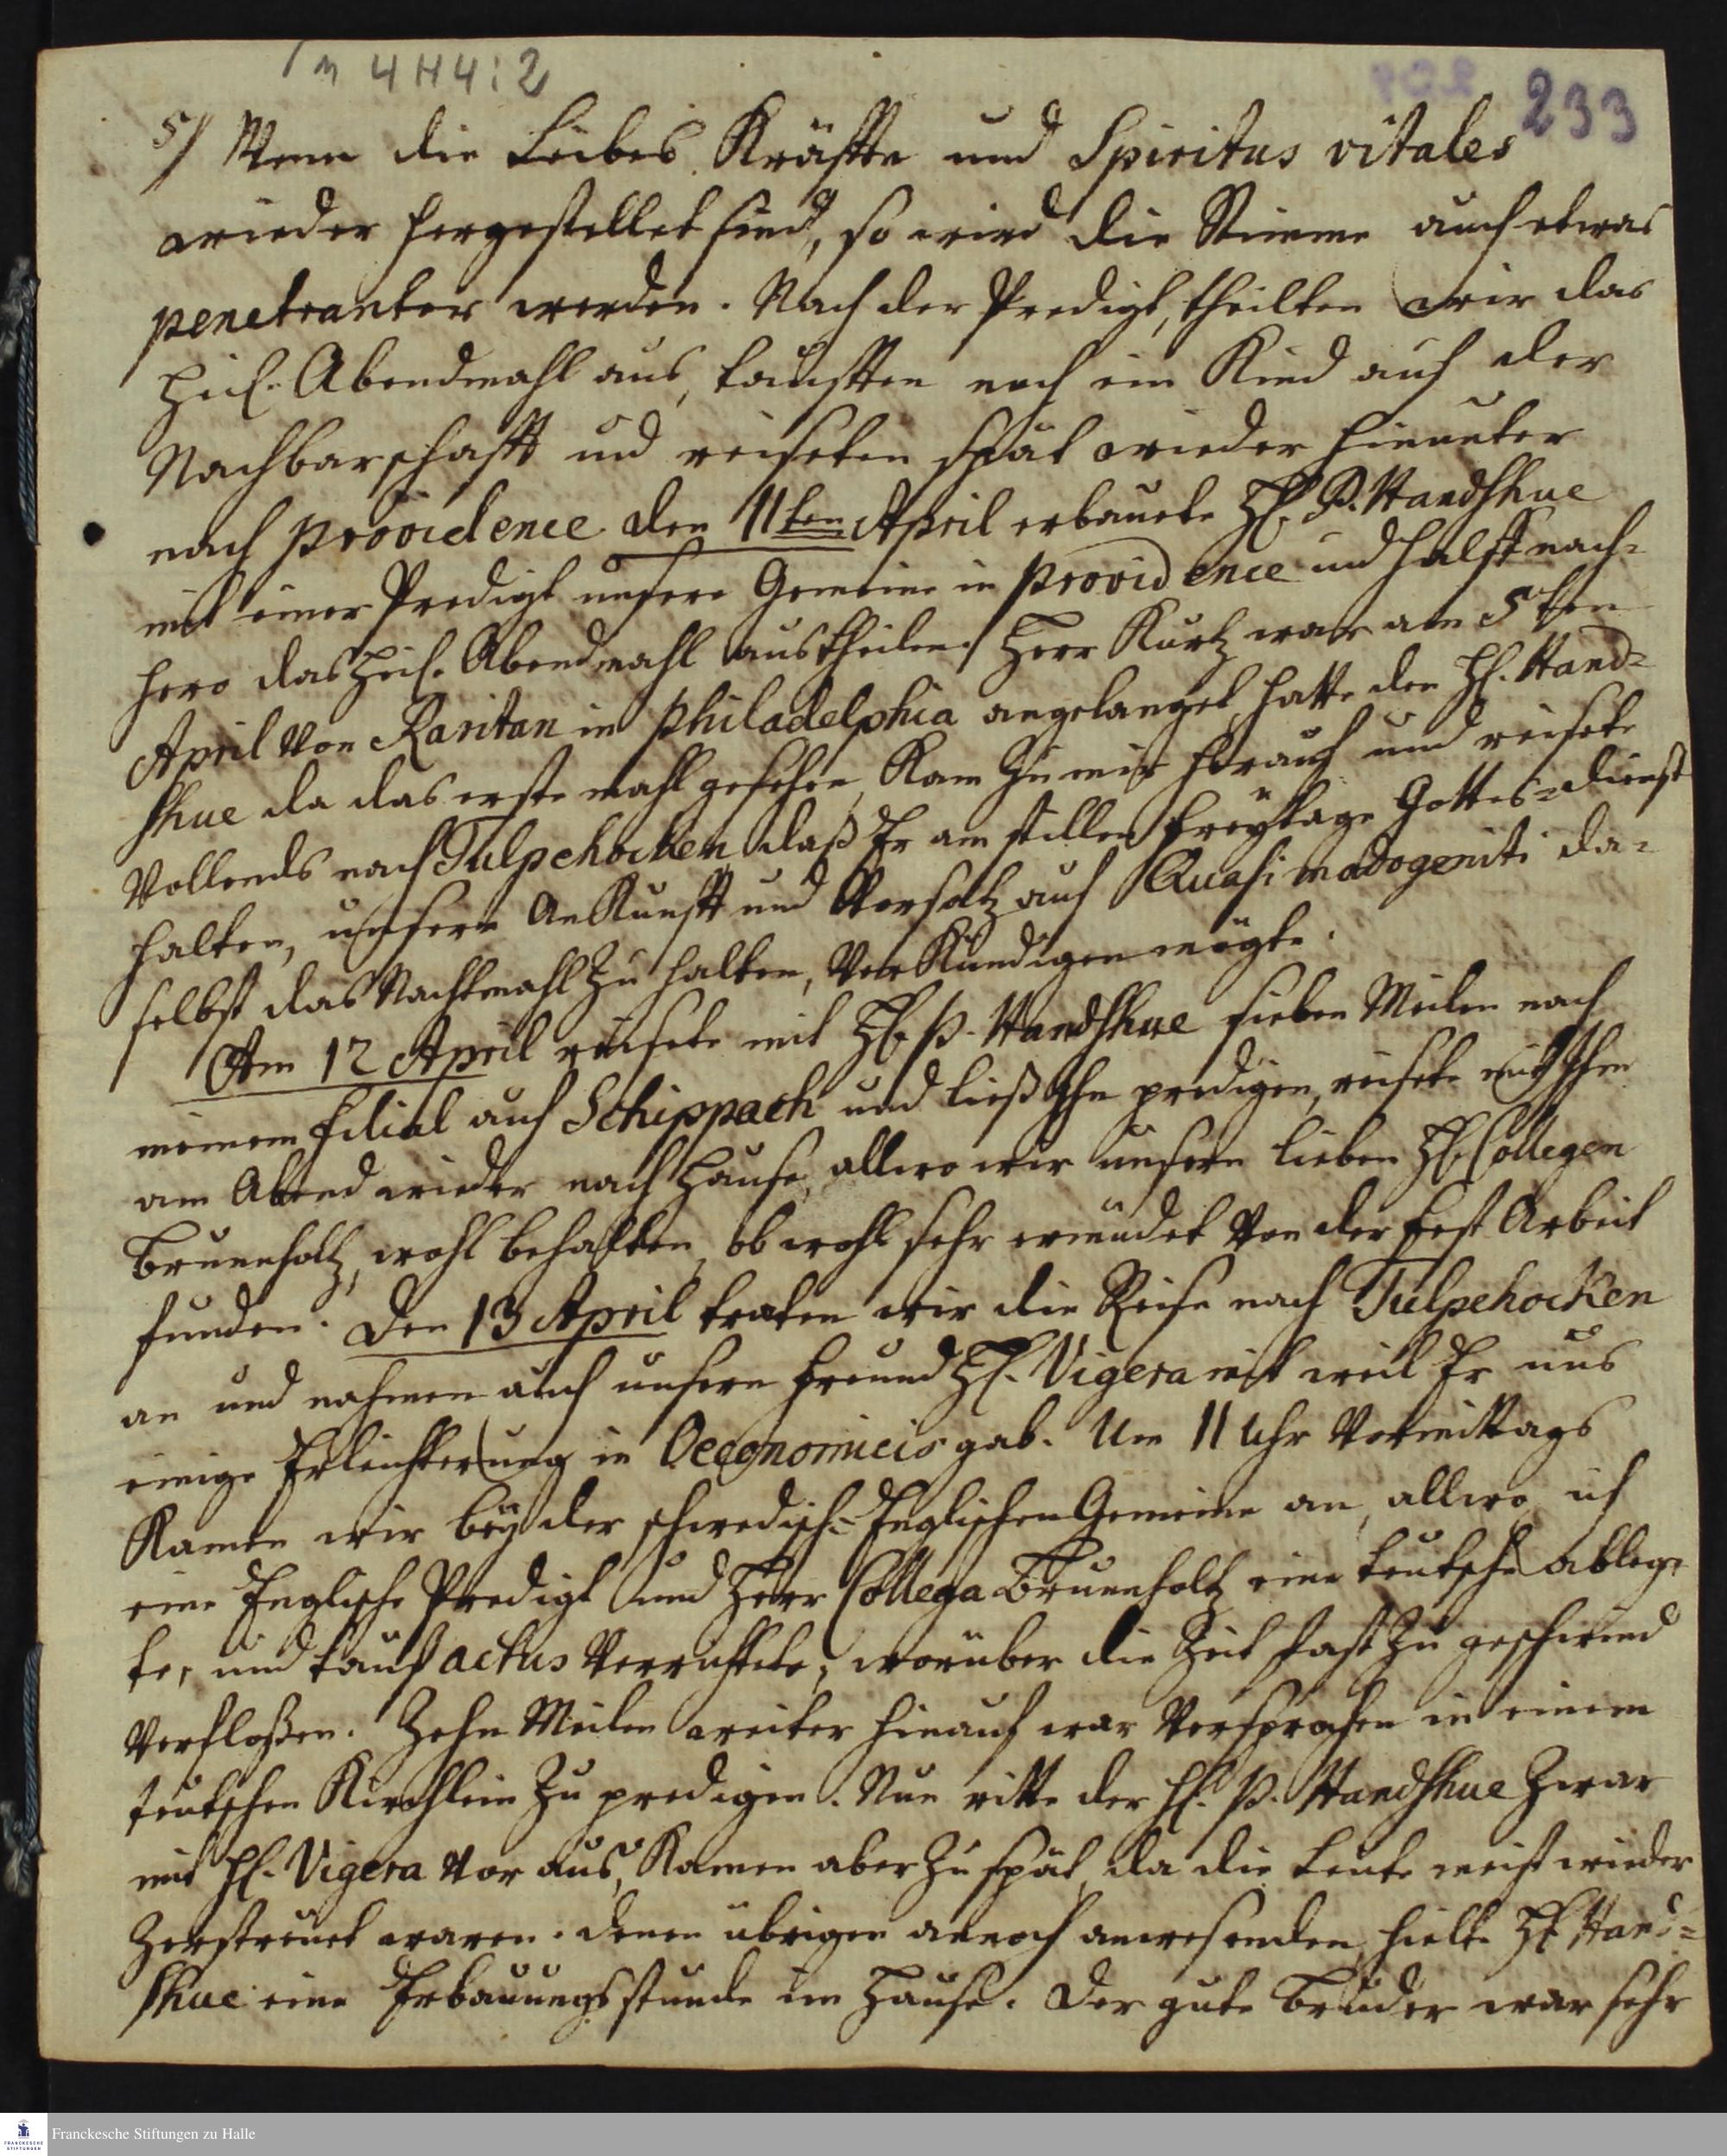 M 4 H 4 : 2
233
5/ Wenn die Leibes Kräffte und Spiritus vitales
wieder hergestellet sind, so wird die Stimme auch etwas
penetranter werden. Nach der Predigt, theilten wir das
Heil. Abendmahl aus, taufften noch ein Kind auf der
Nachbarschafft und reiseten spät wieder hinunter
nach providence. den 11ten April erbauete H. P. Handshue
mit einer Predigt unsere Gemeine in providence und halff nach=
hero das Heil. Abendmahl austheilen. Herr Kurtz war am 5ten
April von Raritan in philadelphia angelanget, hatte den H. Hand=
shue da das erste mahl gesehen, Kam zu mir herauf und reisete
vollends nach Tulpehocken, daß Er am stillen freytage Gottes=dienst
halten, unsere AnKunfft und Vorsatz auf Quasimodogeniti da=
selbst das Nachtmahl zu halten, verKündigen mögte.
Am 12 April reisete mit H. P. Handshue sieben Meilen nach
meinem filial auf Schippach und ließ Ihn predigen, reisete mit Ihm
am Abend wieder nach Hause, allwo wir unsern lieben H. Collegen
Brunnholtz, wohl behalten, ob wohl sehr ermüdet von der fest Arbeit
funden. Den 13 April traten wir die Reise nach Tulpehocken
an und nahmen auch unsern freund H. Vigera mit weil Er uns
einige Erleichterung in Oeconomicis gab. Um 11 Uhr Vormittags
Kamen wir bey der schwedisch=Englischen Gemeine an, allwo ich
eine Englische Predigt und Herr Collega Brunnholtz eine teutsche ableg=
te, und tauf actus verrichtete, worüber die Zeit fast zu geschwind
verfloßen. Zehn Meilen weiter hinauf war versprochen in einem
teutschen Kirchlein zu predigen. Nun ritte der H. P. Handshue zwar
mit H. Vigera vor aus, Kamen aber zu spät, da die Leute meist wieder
zerstreuet waren. denen übrigen annoch anwesenden, hielte H. Hand=
shue eine Erbauungsstunde im Hause. Der gute Bruder war sehr
Franckesche Stiftungen zu Halle